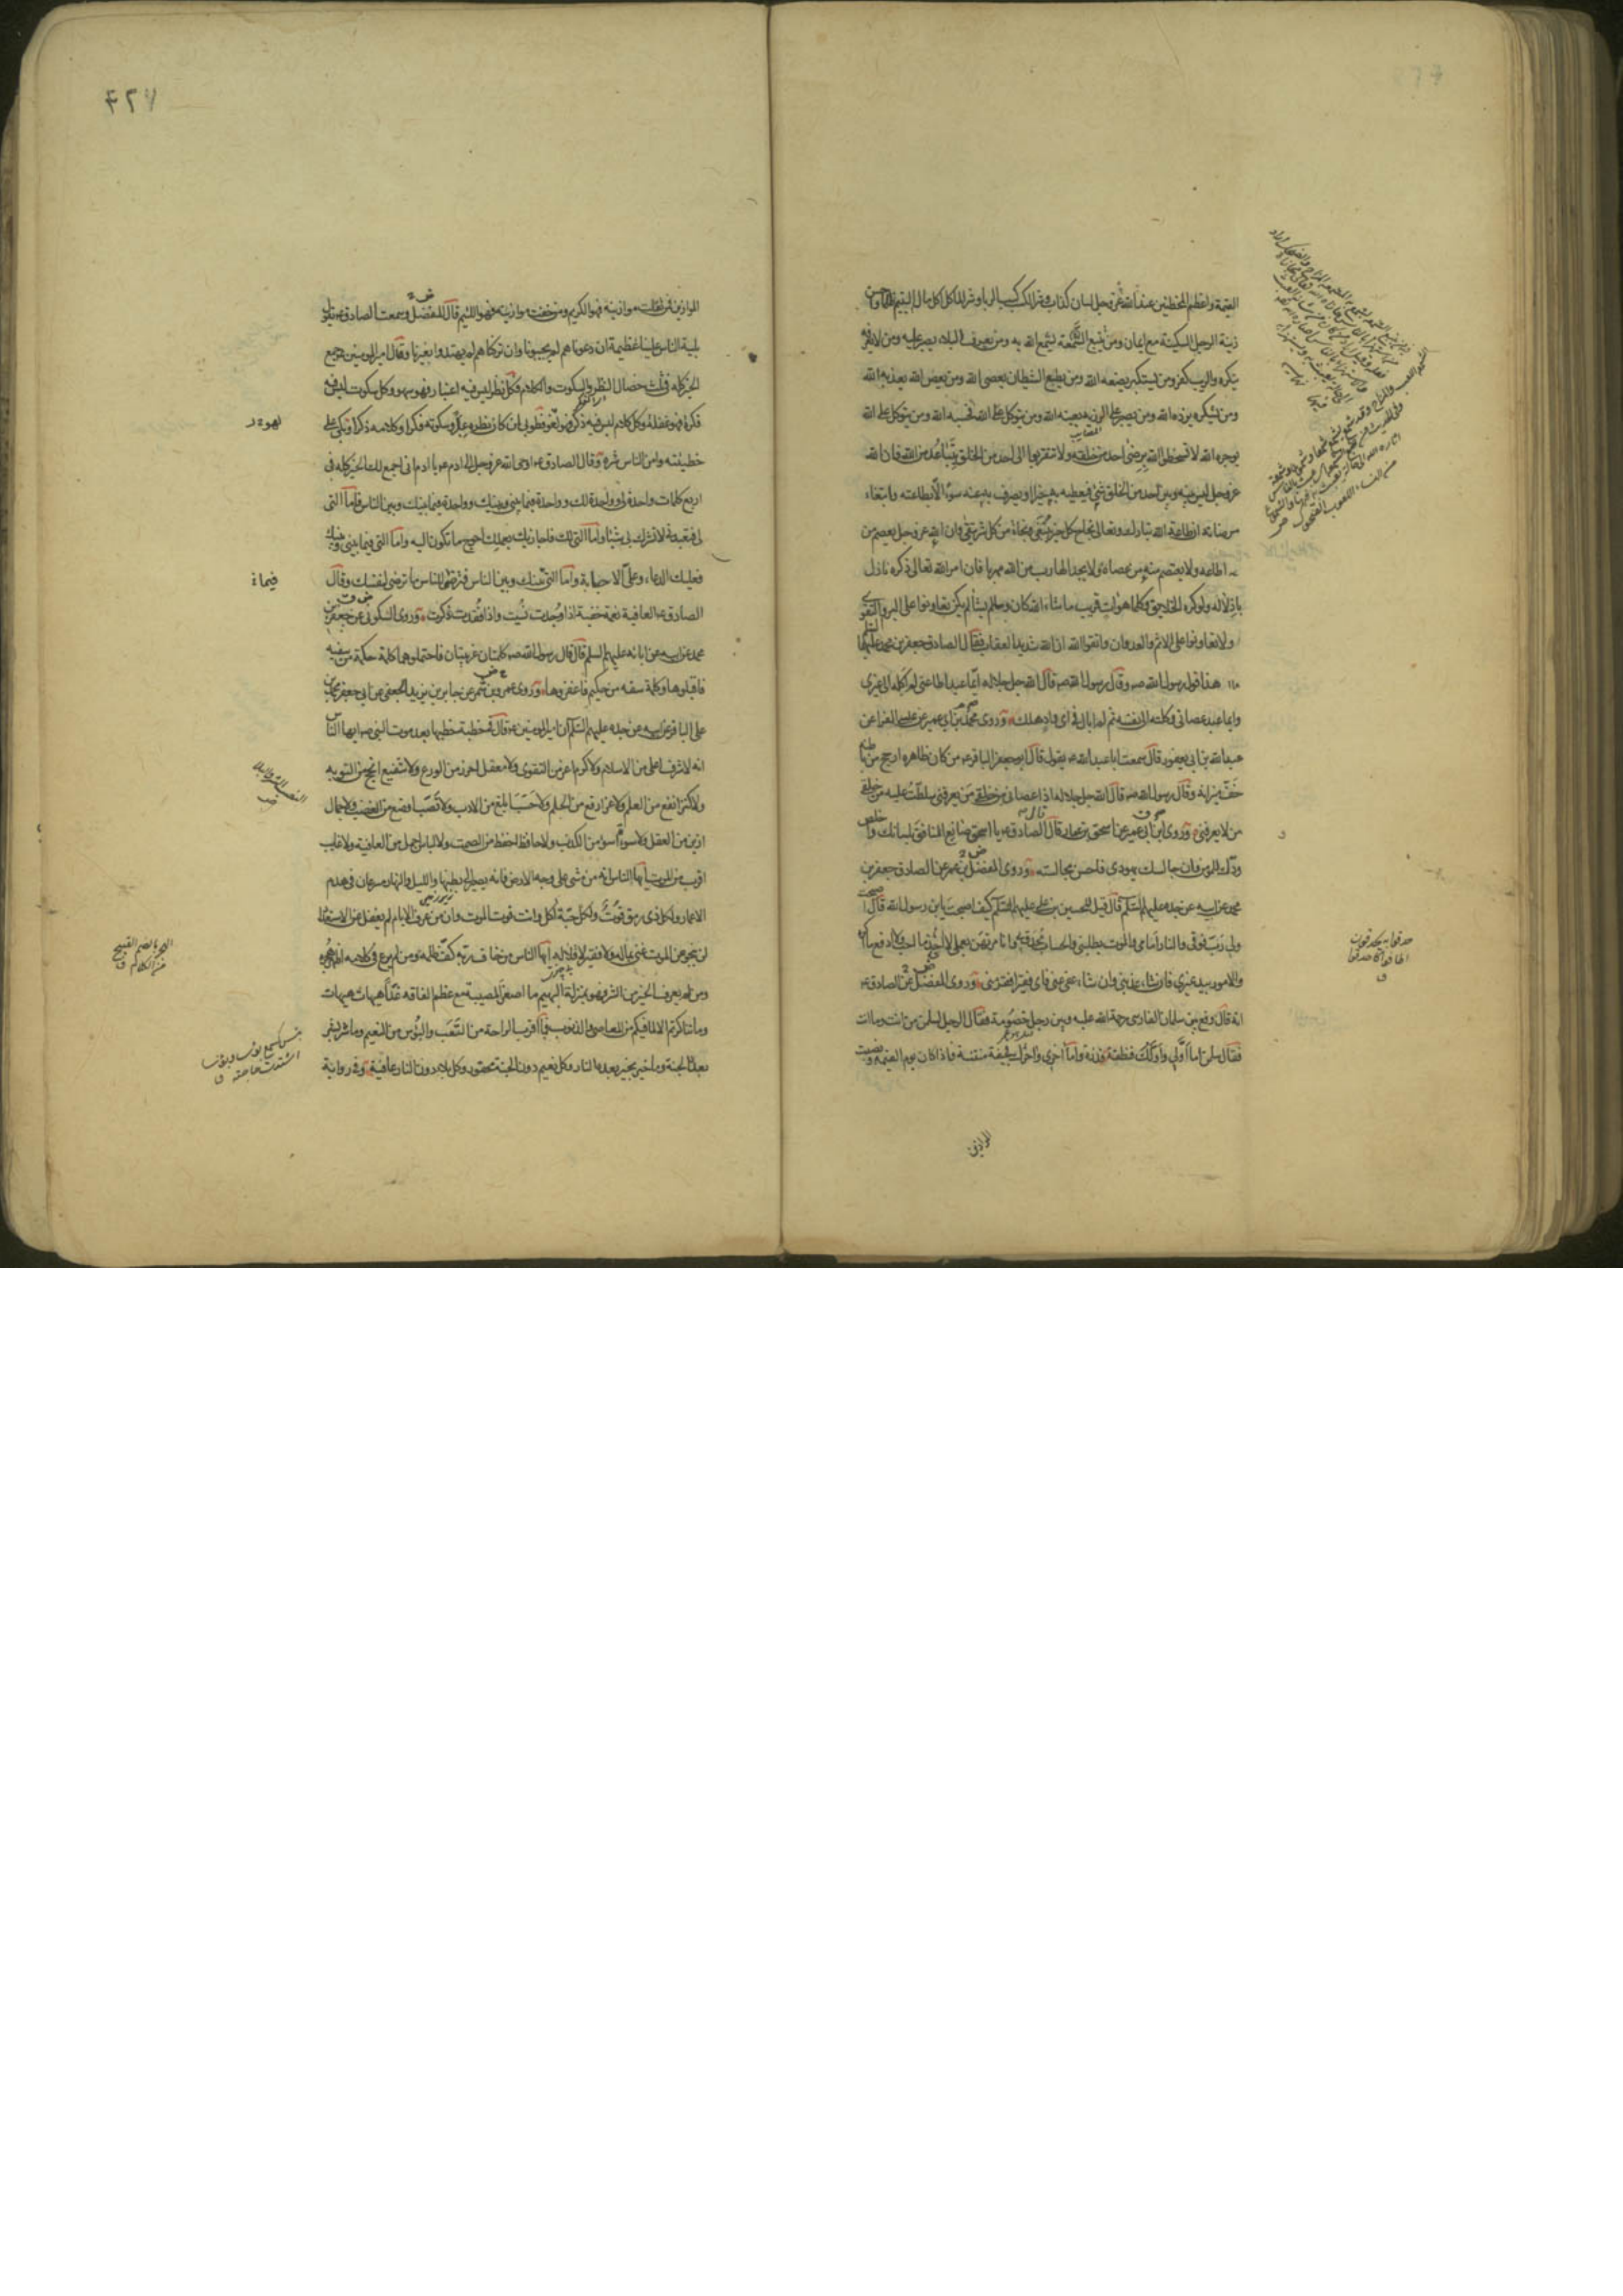 القيمة واعظم المخطئين عند الله عز وجل لسان كذاب وشر الكسب كسب الربا وشر المآكل اكل مال اليتيم ظلما واحسن
زينة الرجل السكينة مع ايمان ومن يتبع المشمعة يشمع الله به ومن يعرف البلاء يصبر عليه ومن لا يعرفه
ينكره والريب كفر ومن يستكبر يضعه الله ومن يطع الشيطان يعصى الله ومن يعص الله يعذبه الله
ومن يشكره يزده الله ومن يصبر على الرزية يعينه الله ومن يتوكل على الله فحسبه الله ومن يتوكل على الله
يوجره الله لا تسخطوا الله برضى احد من خلقه ولا تتقربوا الى احد من الخلق بتباعد من الله فان الله
عز وجل ليس بينه وبين احد من الخلق شئ فيعطيه به خيرا او يصرف به عنه سوءا الا بطاعته وابتغاء
مرضاته ان طاعة الله تبارك وتعالى نجاح كل خير يبتغى ونجاة من كل شر يتقى وان الله عز وجل يعصم من
اطاعه ولا يعتصم منه من عصاه ولا يجد الهارب من الله مهربا فان امر الله تعالى ذكره نازل
باذلاله ولو كره الخلايق وكلما هو آت قريب ما شاء الله كان وما لم يشأ لم يكن تعاونوا على البر والتقوى
ولا تعاونوا على الاثم والعدوان واتقوا الله ان الله شديد العقاب فقال الصادق جعفر بن محمد عليهما
هذا قول رسول الله صه وقال رسول الله صه قال الله جل جلاله ايما عبد اطاعنى لم اكله الى غيرى
وايما عبد عصانى وكلته الى نفسه ثم لم ابال فى اى واد هلك وروى محمد بن ابى عمير عن عيسى الفرا عن
عبد الله بن ابى يعفور قال سمعت ابا عبد الله ع يقول قال ابو جعفر الباقر ع من كان ظاهره ارجح من باطنه
خف ميزانه وقال رسول الله صه قال الله جل جلاله اذا عصانى من خلقى من يعرفنى سلطت عليه من خلقى
من لا يعرفنى وروى ابن ابى عمير عن اسحق بن عمار قال قال الصادق ع يا اسحق صانع المنافق بلسانك واخلص
ودك للمؤمن وان جالسك يهودى فاحسن مجالسته وروى المفضل بن عمر عن الصادق جعفر بن
محمد عن ابيه عن جده عليهم السلم قال قيل للحسين بن على عليهم السلم كيف اصبحت يابن رسول الله قال اصبحت
ولى رب فوقى والنار امامى والموت يطلبنى والحساب محدق بى وانا مرتهن بعملى لا اجد ما احب ولا ادفع ما اكره
والامور بيد غيرى فان شاء عذبنى وان شاء عفى عنى فاى فقير افقر منى وروى المفضل عن الصادق ع
انه قال وقع بين سلمان الفارسى رحمة الله عليه وبين رجل خصومة فقال الرجل لسلمن من انت وما انت
فقال سلمن اما اولى واولك فنطفة قذرة واما اخرى واخرك فجيفة منتنة فاذا كان يوم القيمة ونصبت
الموازين
حدقوا به يحدقون
اطافوا كاحدقوا
ق
٤٢٧
الموازين فمن ثقلت موازينه فهو الكريم ومن خفت موازينه فهو اللئيم قال المفضل وسمعت الصادق ع يقول
بلية الناس علينا عظيمة ان دعوناهم لم يجيبونا وان تركناهم لم يهتدوا بغيرنا وقال امير المومنين ع جمع
الخير كله فى ثلث خصال النظر والسكوت والكلام فكل نظر ليس فيه اعتبار فهو سهو وكل سكوت ليس فيه
فكرة فهو غفلة وكل كلام ليس فيه ذكر فهو لغو فطوبى لمن كان نظره عبرا وسكوته فكرا وكلامه ذكرا وبكى على
خطيئته وامن الناس شره وقال الصادق ع اوحى الله عز وجل الى ادم ع يا ادم انى اجمع لك الخير كله فى
اربع كلمات واحدة لى وواحدة لك وواحدة فيما بينى وبينك وواحدة فيما بينك وبين الناس فاما التى
لى فتعبدنى لا تشرك بى شيئا واما التى لك فاجازيك بعملك احوج ما تكون اليه واما التى فيما بينى وبينك
فعليك الدعاء وعلى الاجابة واما التى بينك وبين الناس فترضى للناس ما ترضى لنفسك وقال
الصادق ع العافية نعمة خفية اذا وجدت نسيت واذا فقدت ذكرت وروى السكونى عن جعفر بن
محمد عن ابيه عن ابائه عليهم السلم قال قال رسول الله صه كلمتان غريبتان فاحتملوهما كلمة حكمة من سفيه
فاقبلوها وكلمة سفه من حكيم فاغفروها وروى عمرو بن شمر عن جابر بن يزيد الجعفى عن ابى جعفر محمد بن
على الباقر عن ابيه عن جده عليهم السلم ان امير المومنين ع قال فى خطبة خطبها بعد موت النبى صه ايها الناس
انه لا شرف اعلى من الاسلام ولا كرم اعز من التقوى ولا معقل احرز من الورع ولا شفيع انجح من التوبه
ولا كنز انفع من العلم ولا عز ارفع من الحلم ولا حسب ابلغ من الادب ولا نصب اوضع من الغضب ولا جمال
ازين من العقل ولا سوءة اسوء من الكذب ولا حافظ احفظ من الصمت ولا لباس اجمل من العافية ولا غايب
اقرب من الموت ايها الناس انه من مشى على وجه الارض فانه يصير الى بطنها والليل والنهار مسرعان فى هدم
الاعمار ولكل ذى رمق قوت ولكل حبة آكل وانت قوت الموت وان من عرف الايام لم يغفل عن الاستعداد
لن ينجو من الموت غنى بماله ولا فقير لاقلاله ايها الناس من خاف ربه كف ظلمه ومن لم يرع فى كلامه اظهر هجره
ومن لم يعرف الخير من الشر فهو بمنزلة البهيم ما اصغر المصيبة مع عظم الفاقه غدا هيهات هيهات
وما تناكرتم الا لما فيكم من المعاصى والذنوب فما اقرب الراحة من التعب والبؤس من النعيم وما شر بشر
بعده الجنة وما خير بخير بعده النار وكل نعيم دون الجنة محقور وكل بلاء دون النار عافية وفى رواية
لهو
فيما
الهجر بالضم القبيح
من الكلام ق